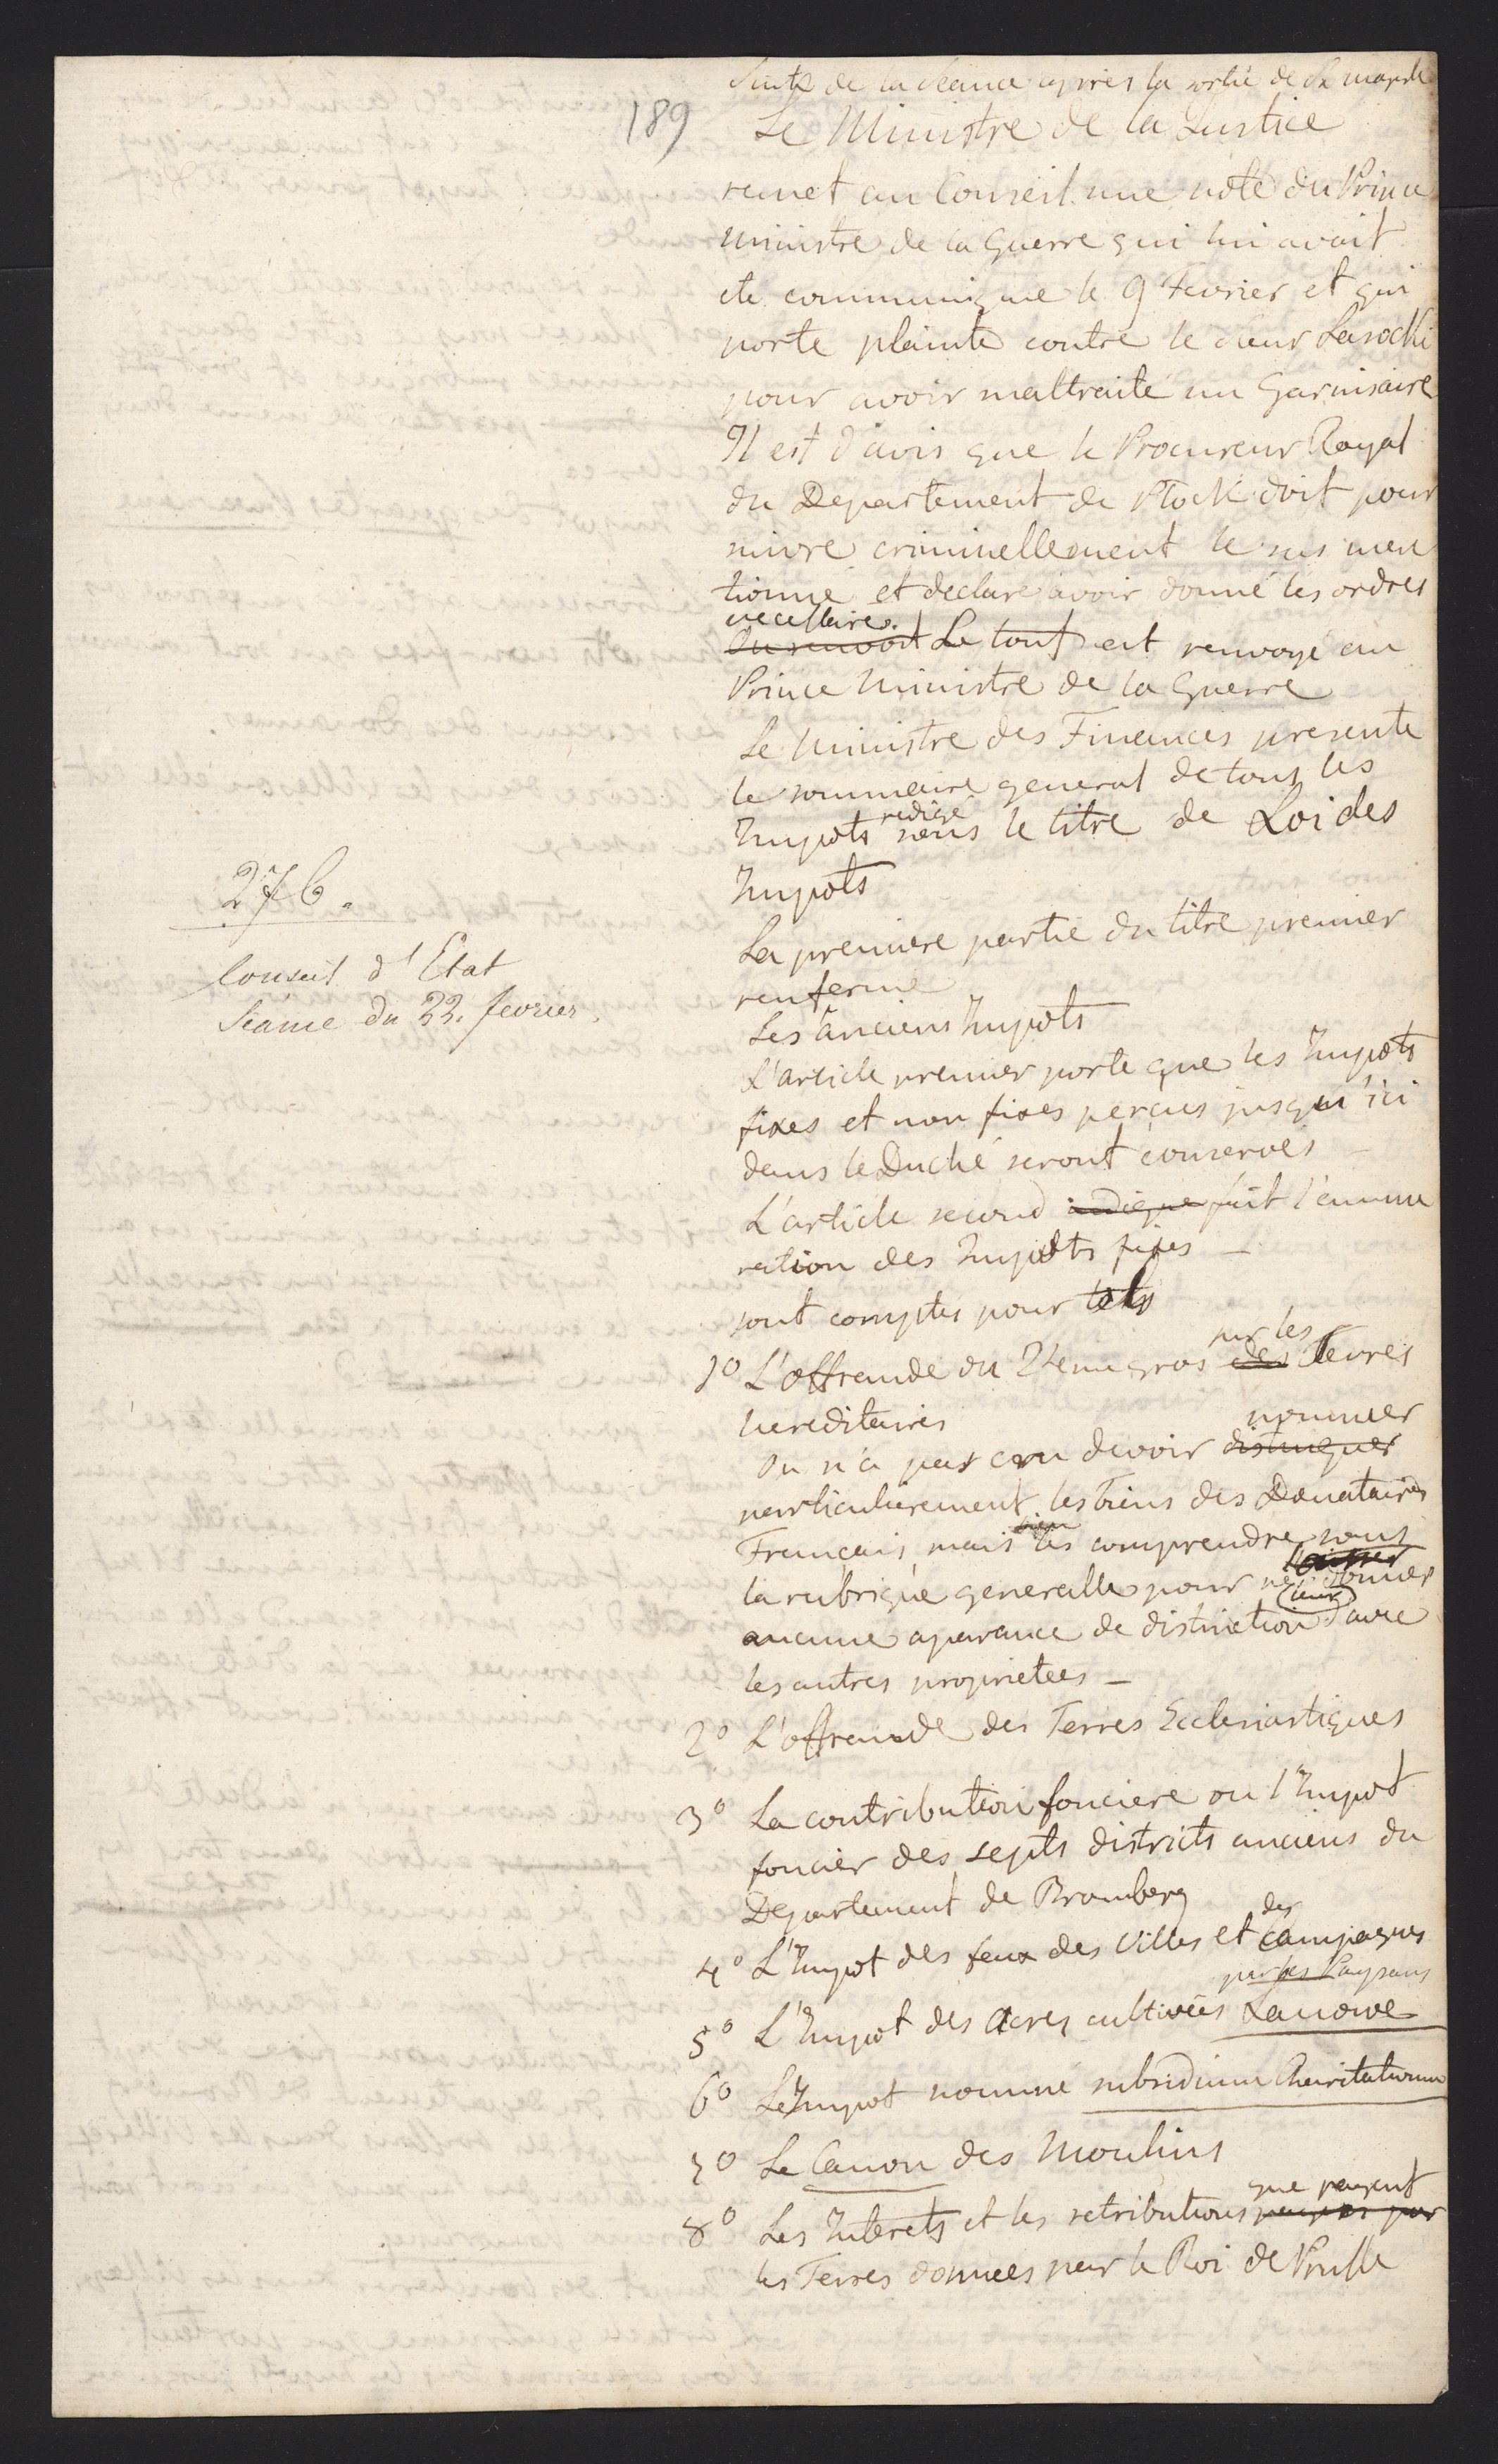 Suite de la seance apres la sortie de Sa majesté
189
Le Ministre de la Justice
remet au Conseil une note du Prince
Ministre de la Guerre qui lui avait
ete communiquée le 9 Fevrier et qui
porte plainte contre le Sieur Lasocki
pour avoir maltraité un Garnisaire
Il est d'avis que le Procureur Royal
du Departement de Plock doit pour
suivre criminellement le sus men
tionné et declare avoir donné les ordres
necessaires.
On renvoit Le tout est renvoyé au
Prince Ministre de la Guerre
Le Ministre des Finances presente
le sommaire general de tous les
Impots redigé sous le titre de Loi des
Impots
276.
Conseil d'Etat
Séance du 22. fevrier.
La premiere partie du titre premier
renferme
Les anciens Impots
L'article premier porte que les Impots
fixes et non fixes perçus jusqu'ici
dans le Duché seront conservés
L'article second indique fait l'enume
ration des Impots fixes —
sont comptés pour tels
1º L'offrande du 24eme gros des sur les Terres
hereditaires
On n'a pas cru devoir distinguer nommer
particulierement les biens des Donataires
Français mais les comprendre sous
la rubrique generalle pour ne laisser donner
aucune aparance de distinction avec
les autres proprietees —
2º L'offrande des Terres Ecclesiastiques
3º La contribution fonciere ou l'Impot
foncier des septs districts anciens du
Departement de Bromberg
4º L'Impot des feux des Villes et des Campagnes
5º L'Impot des acres cultivées par les Paysans Lanowe
6º Le Impot nommé subsidium Charitativum
7º Le Canon des Moulins
8º Les Interets et les retributions payées par que payent
les Terres données par le Roi de Prusse